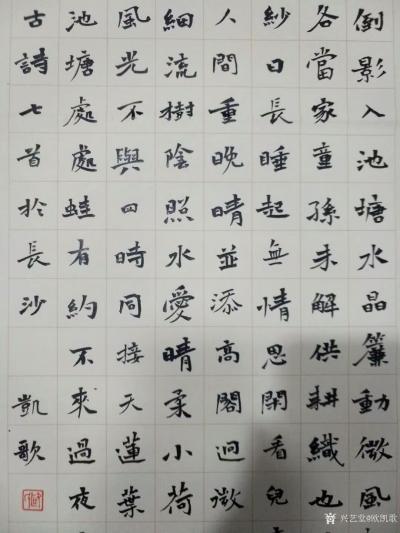 倒影入池塘水晶簾動微風
各當家童孫未解供耕織也
紗日長睡起無情思閑看兒
人間重晚晴並添高閣迥微
細流樹陰照水愛晴柔小荷
風光不與四時同接天蓮葉
池塘處處蛙有約不來過夜
古詩七首於長沙 凱歌
兴艺堂@欧凯歌